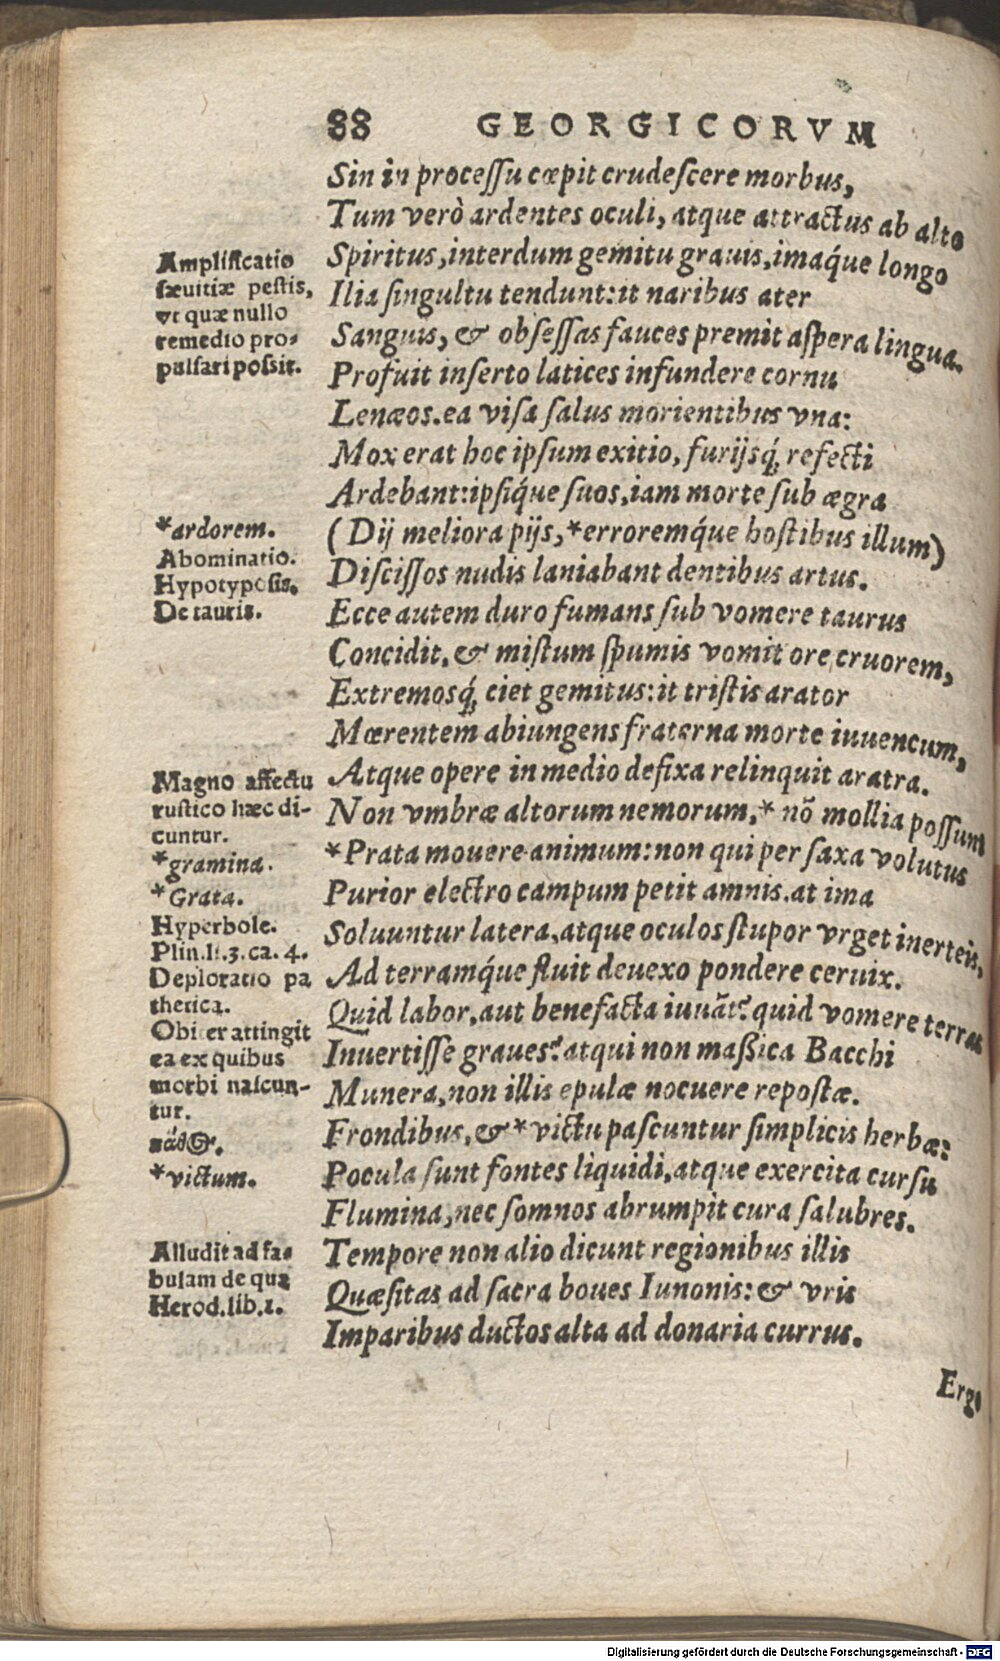 88 GEORGICORVM
Sin in processu cœpit crudescere morbus,
Tum verò ardentes oculi, atque attractus ab alto
Spiritus, interdum gemitu grauis, imaq́ue longo
Ilia singultu tendunt: it naribus ater
Sanguis, & obsessas fauces premit aspera lingua.
Profuit inserto latices infundere cornu
Lenæos. ea visa salus morientibus vna:
Mox erat hoc ipsum exitio, furijsq́; refecti
Ardebant: ipsiq́ue suos, iam morte sub ægra
(Dij meliora pijs, *erroremq́ue hostibus illum)
Discissos nudis laniabant dentibus artus.
Ecce autem duro fumans sub vomere taurus
Concidit, & mistum spumis vomit ore cruorem,
Extremosq́; ciet gemitus: it tristis arator
Mœrentem abiungens fraterna morte iuuencum,
Atque opere in medio defixa relinquit aratra.
Non vmbræ altorum nemorum, * nõ mollia possunt
*Prata mouere animum: non qui per saxa volutus
Purior electro campum petit amnis. at ima
Soluuntur latera, atque oculos stupor vrget inerteis,
Ad terramq́ue fluit deuexo pondere ceruix.
Quid labor, aut benefacta iuuãt? quid vomere terras
Inuertisse graues? atqui non maßica Bacchi
Munera, non illis epulæ nocuere repostæ.
Frondibus, & *victu pascuntur simplicis herbæ:
Pocula sunt fontes liquidi, atque exercita cursu
Flumina, nec somnos abrumpit cura salubres.
Tempore non alio dicunt regionibus illis
Quæsitas ad sacra boues Iunonis: & vris
Imparibus ductos alta ad donaria currus.
Ergo
Amplificatio
sæuitiæ pestis,
vt quæ nullo
remedio pro-
pulsari possit.
*ardorem.
Abominatio.
Hypotyposis.
De tauris.
Magno affectu
rustico hæc di-
cuntur.
*gramina.
*Grata.
Hyperbole.
Plin.li.3.ca.4.
Deploratio pa
thetica.
Obiter attingit
ea ex quibus
morbi nascun-
tur.
*victum.
Alludit ad fa-
bulam de qua
Herod.lib.1.
Digitalisierung gefördert durch die Deutsche Forschungsgemeinschaft - DFG